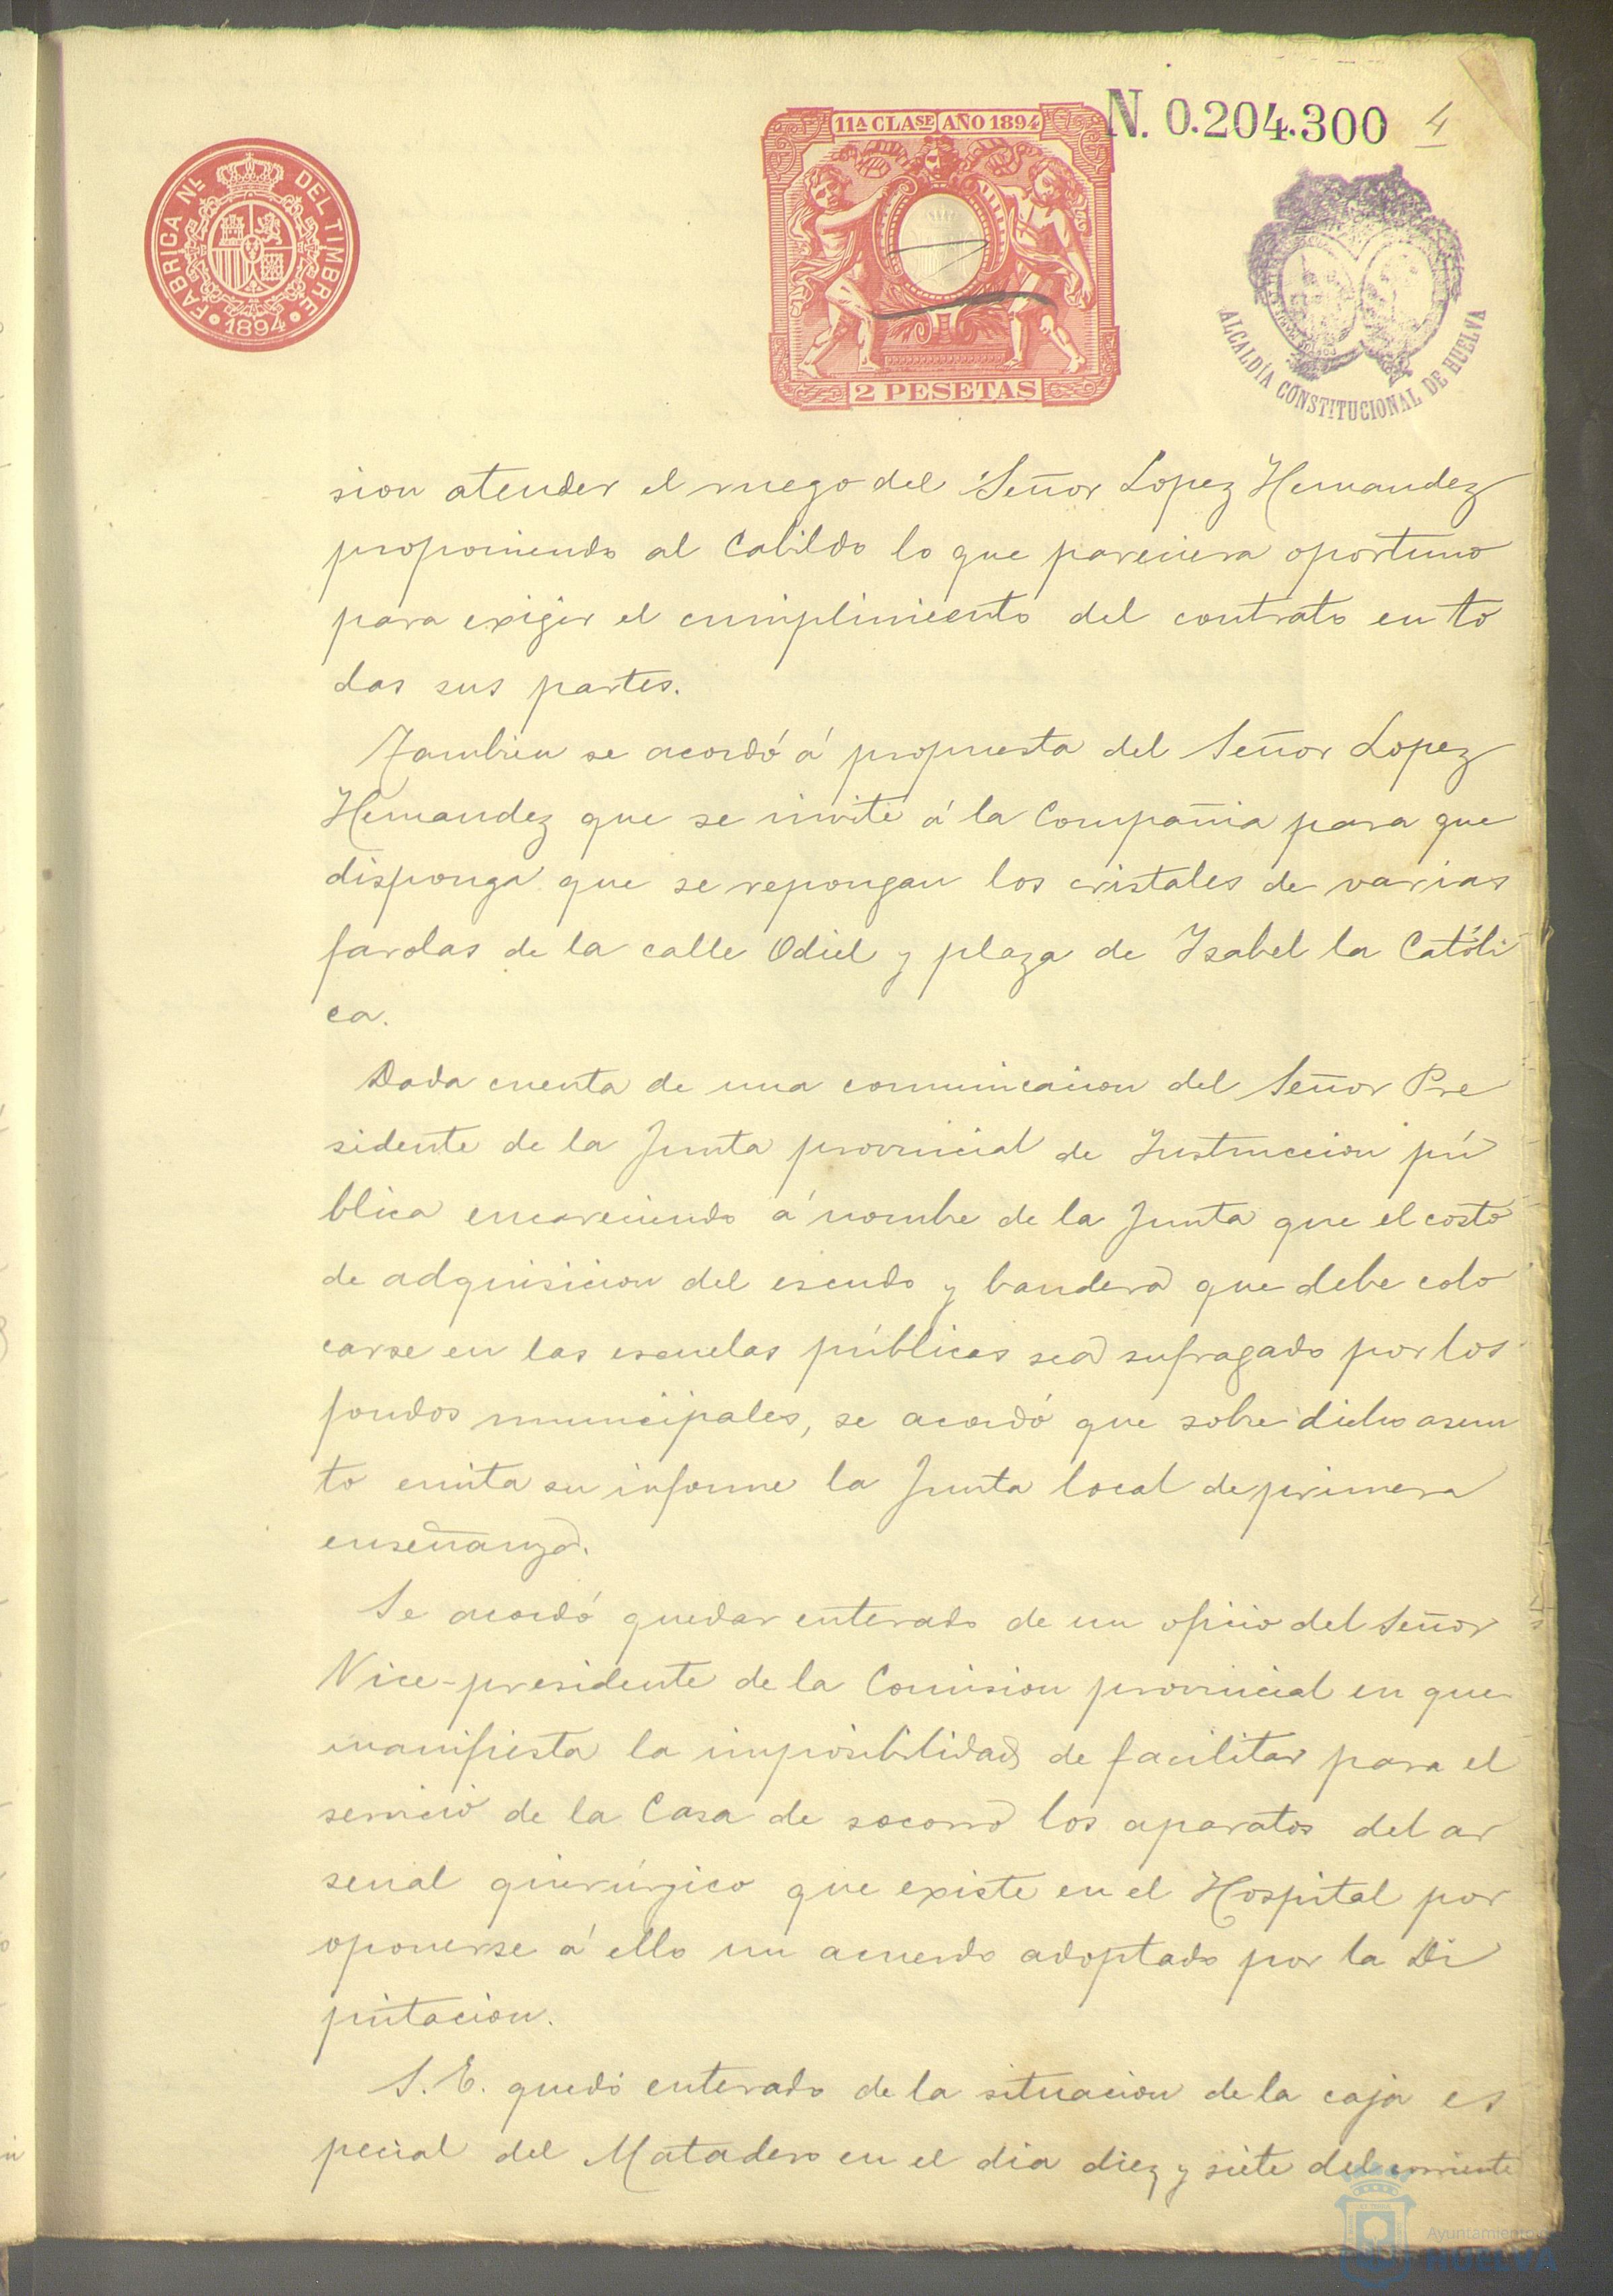 11ª CLASE AÑO 1894
N. 0.204.300
4
FABRICA NL. DEL TIMBRE
1894
2 PESETAS
ALCALDÍA CONSTITUCIONAL DE HUELVA
sion atender el ruego del Señor Lopez Hernandez
proponiendo al Cabildo lo que pareciera oportuno
para exigir el cumplimiento del contrato en to
das sus partes.
Tambien se acordó á propuesta del Señor Lopez
Hernandez que se invite á la Compañia para que
disponga que se repongan los cristales de varias
farolas de la calle Odiel y plaza de Isabel la Católi
ca.
Dada cuenta de una comunicacion del Señor Pre
sidente de la Junta provincial de Instruccion pú
blica encareciendo á nombre de la Junta que el costo
de adquisicion del escudo y bandera que debe colo
carse en las escuelas públicas sea sufragado por los
fondos municipales, se acordó que sobre dicho asun
to emita su informe la Junta local de primera
enseñanza.
Se acordó quedar enterado de un oficio del Señor
Vice-presidente de la Comision provincial en que
manifiesta la imposibilidad de facilitar para el
servicio de la Casa de socorro los aparatos del ar
senal quirúrgico que existe en el Hospital por
oponerse á ello un acuerdo adoptado por la Di
putacion.
S. E. quedó enterado de la situacion de la caja es
pecial del Matadero en el dia diez y siete del corriente
Ayuntamiento
HUELVA